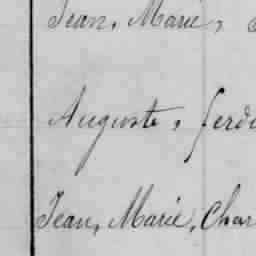 Jean, Marie,
Auguste, ferd
Jean, Marie, Char